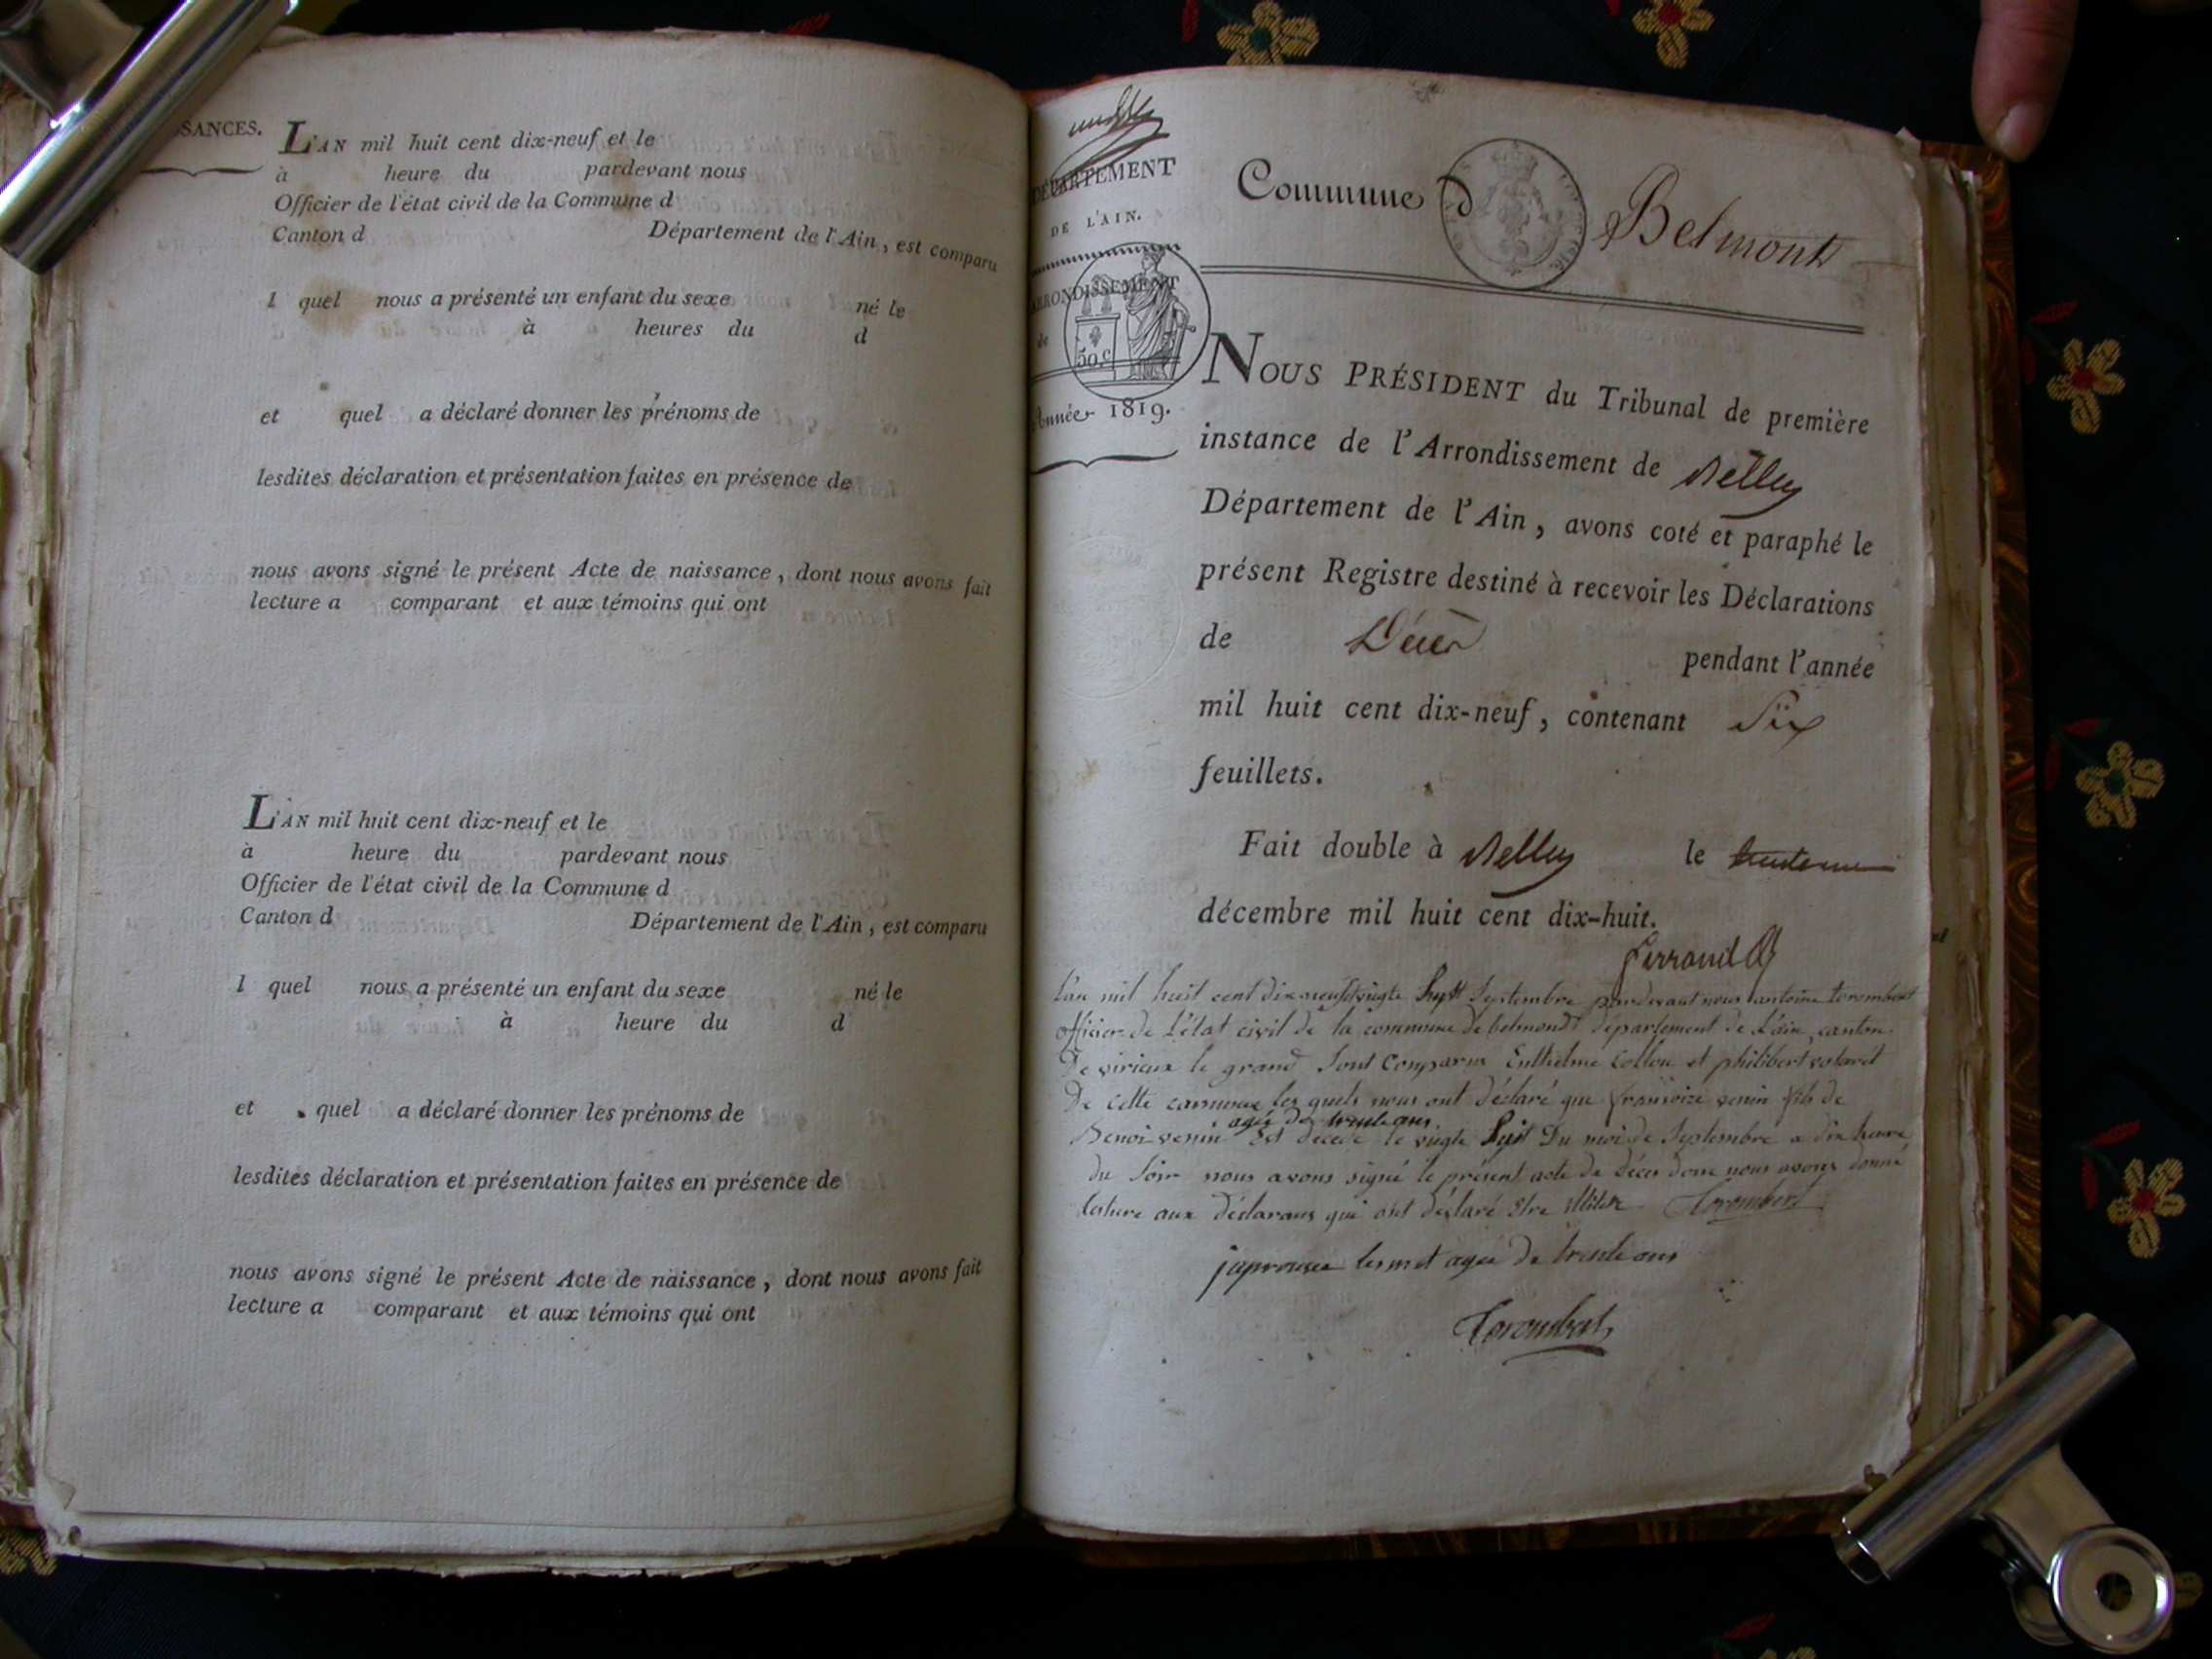 SSANCES.
L'AN mil huit cent dix-neuf et le
à heure du pardevant nous
Officier de l'état civil de la Commune d
Canton d Département de l'Ain, est comparu
l quel nous a présenté un enfant du sexe né le
à heures du d
et quel a déclaré donner les prénoms de
lesdites déclaration et présentation faites en présence de
nous avons signé le présent Acte de naissance, dont nous avons fait
lecture a comparant et aux témoins qui ont
L'AN mil huit cent dix-neuf et le
à heure du pardevant nous
Officier de l'état civil de la Commune d
Canton d Département de l'Ain, est comparu
l quel nous a présenté un enfant du sexe né le
à heure du d
et quel a déclaré donner les prénoms de
lesdites déclaration et présentation faites en présence de
nous avons signé le présent Acte de naissance, dont nous avons fait
lecture a comparant et aux témoins qui ont
DÉPARTEMENT
DE L'AIN.
ARRONDISSEMENT
de
50.c
Année 1819.
Commune d Belmont
NOUS PRÉSIDENT du Tribunal de première
instance de l'Arrondissement de Belley
Département de l'Ain, avons coté et paraphé le
présent Registre destiné à recevoir les Déclarations
de Décès pendant l'année
mil huit cent dix-neuf, contenant Six
feuillets.
Fait double à Belley le
décembre mil huit cent dix-huit.
l'an mil huit cent dix neuf et vingte Sept Septembre pardevant nous antoine torombert
officier de l'état civil de la commune de belmont département de l'ain, canton
De virieux le grand Sont Comparus Enthelme et philibert
De cette commune les quels nous ont déclaré que françoize venin fils de
Benoi venin agée de trente ans. Est décédé le vingte Sept Du moi de Septembre a dix heure
du Soir nous avons signé le présent acte de déces dont nous avons donné
lecture aux déclarans qui ont déclaré Etre Torombert
japrouve lesmot agée De trente ans
Torombert